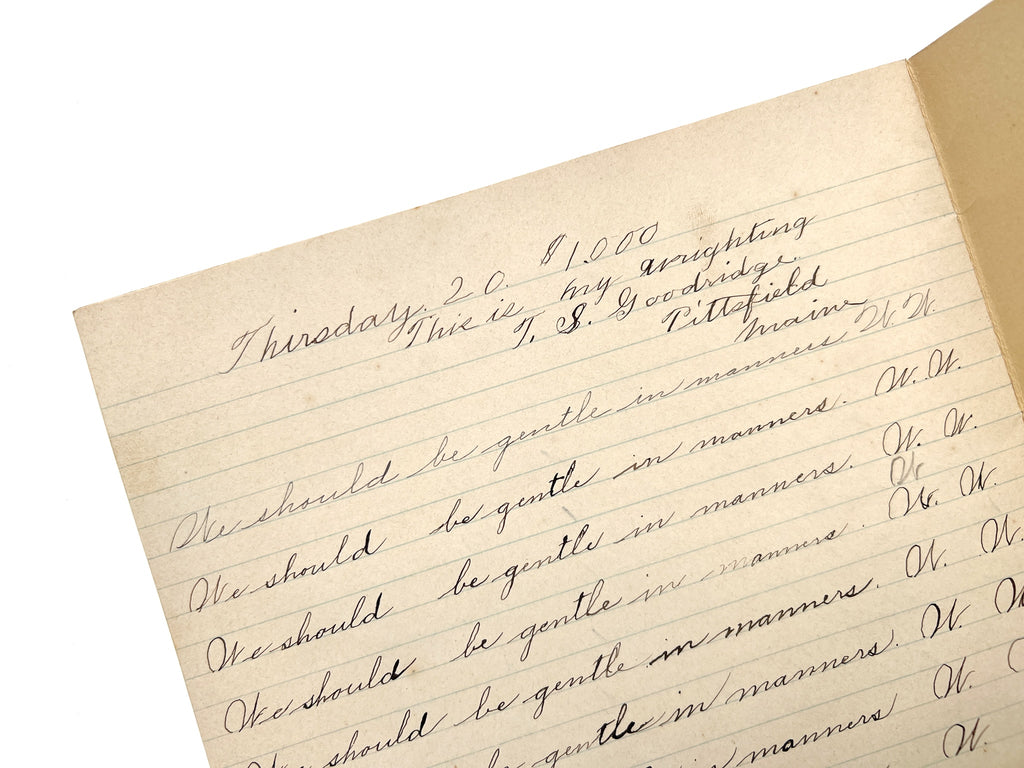 Thirsday. 20. $1.000
This is my wrighting
T. S. Goodridge.
Pittsfield
Maine
We should be gentle in manners W. W.
We should be gentle in manners. W. W.
We should be gentle in manners. W. W.
W
We should be gentle in manners. W. W.
We should be gentle in manners. W. W.
should be gentle in manners. W. W
be gentle in manners W.
W.